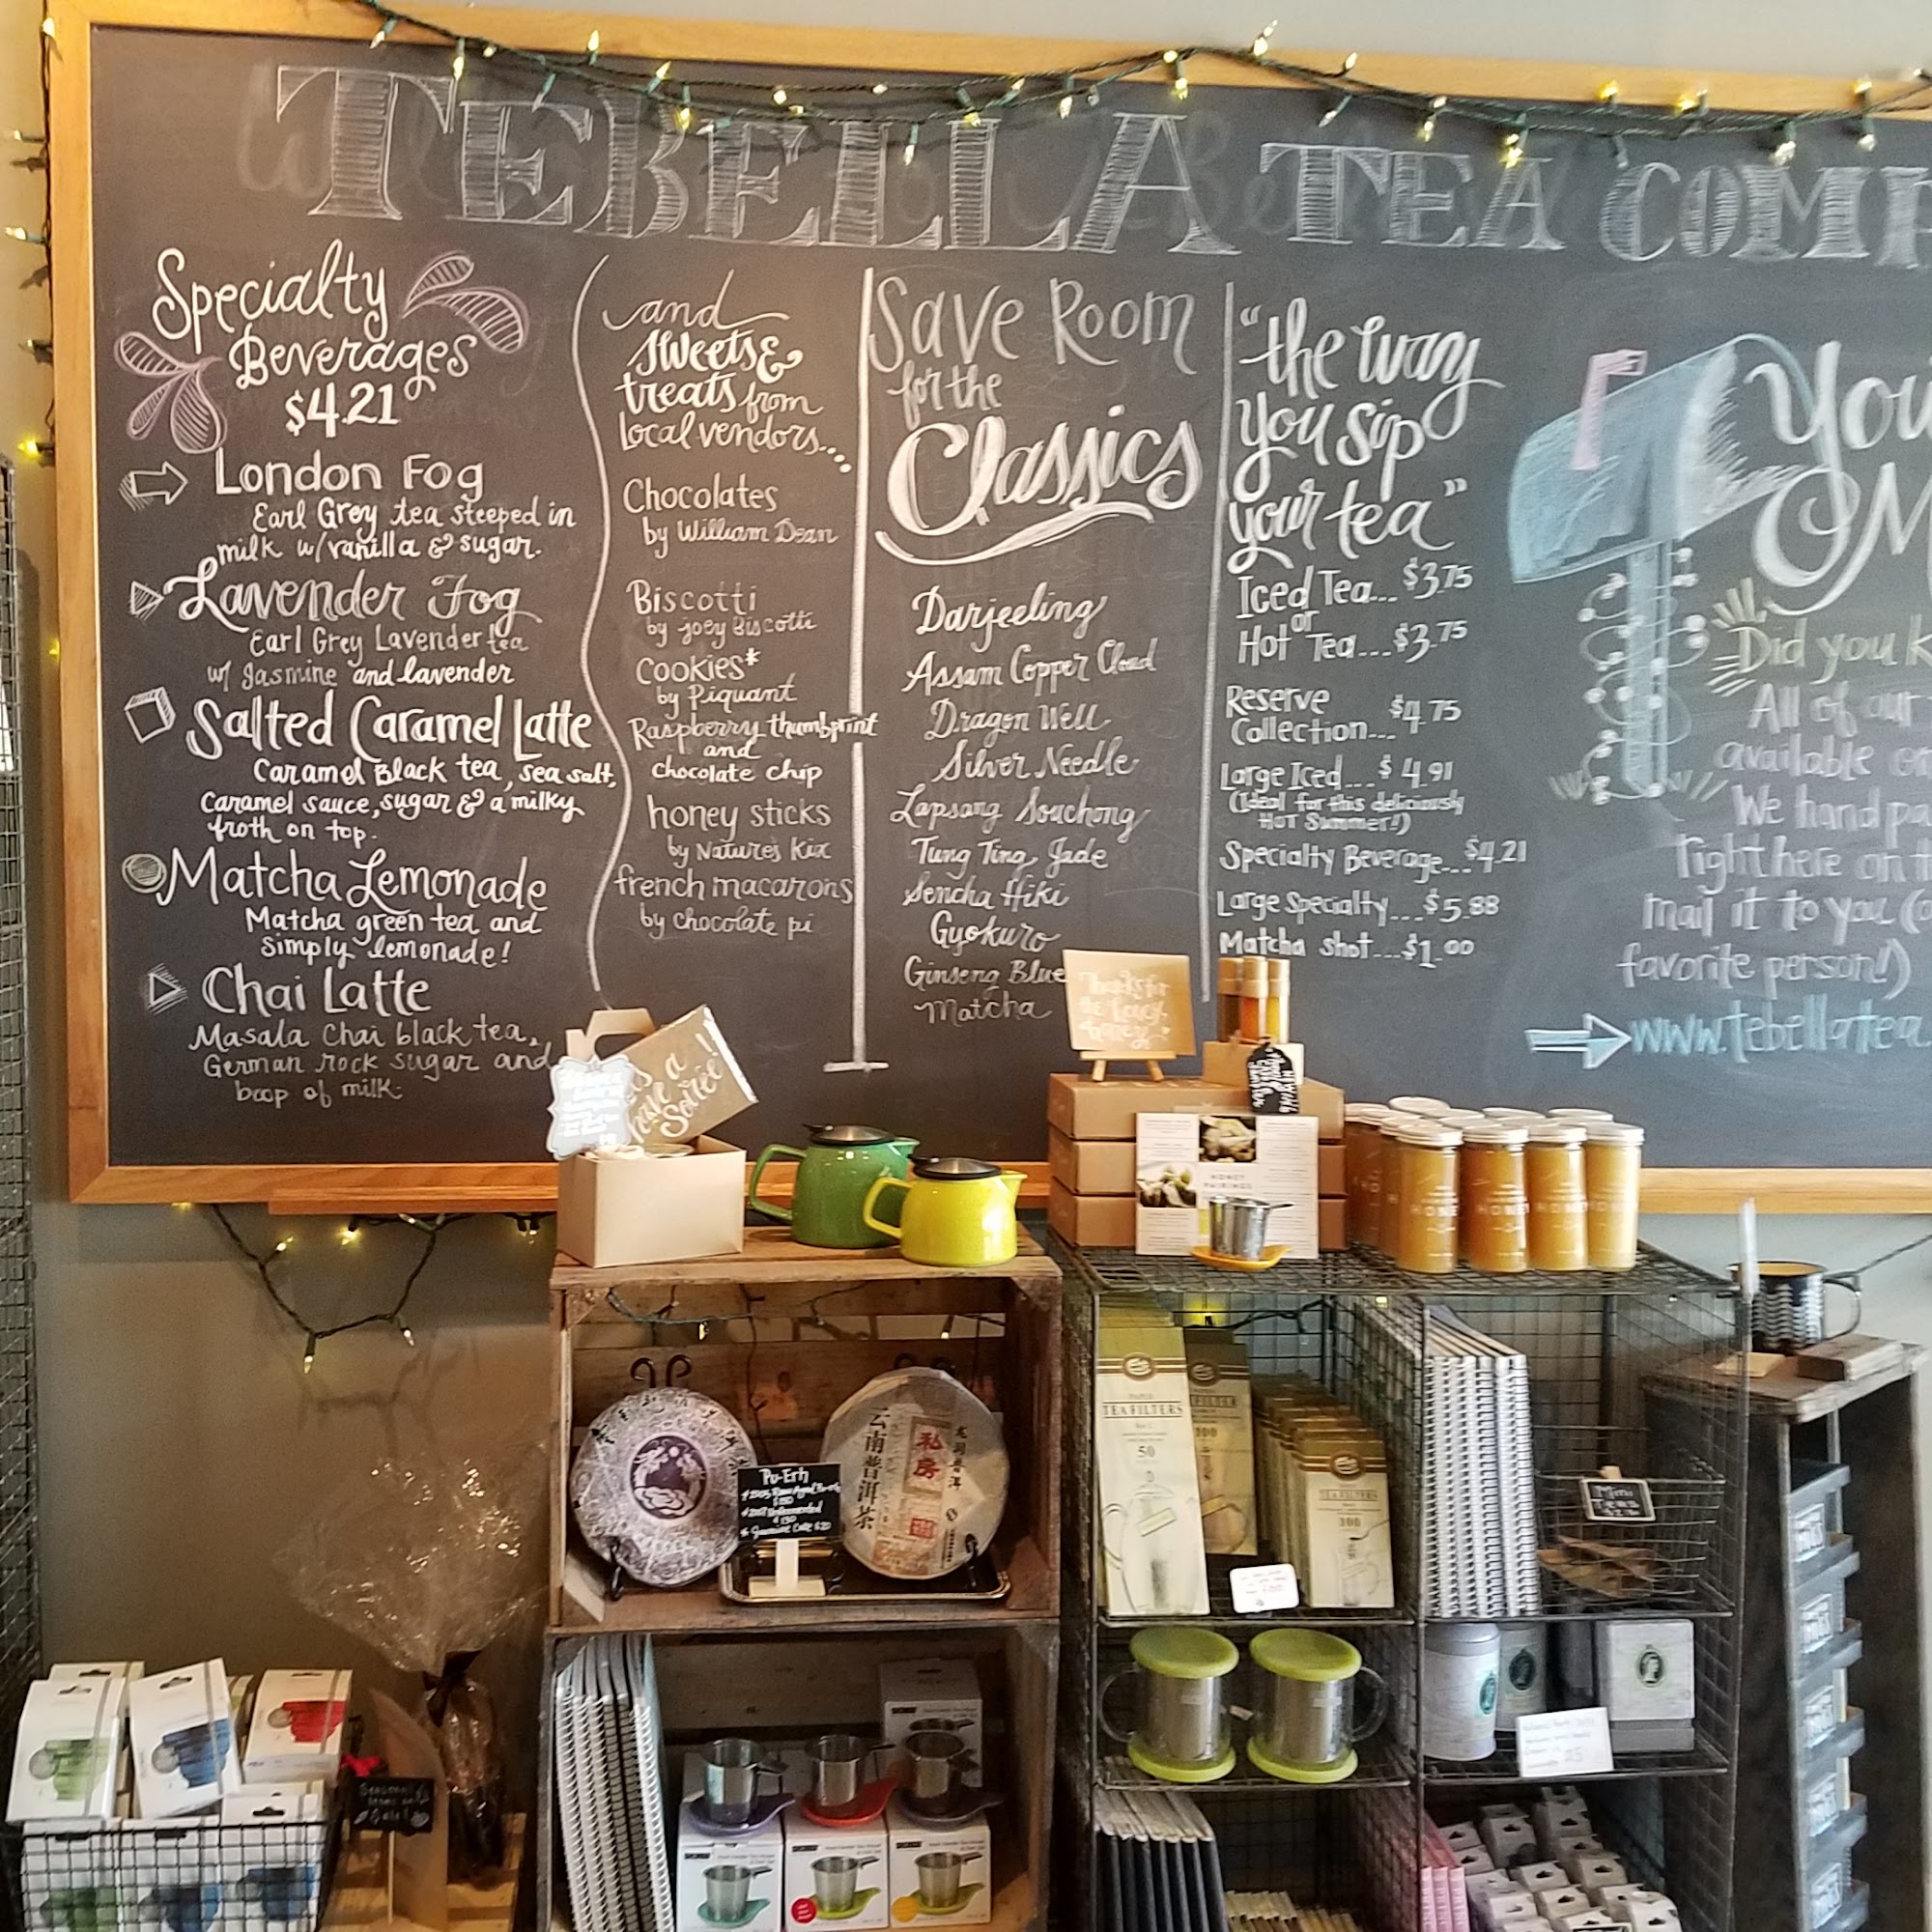 TEBELLA TEA COMP
Specialty
Beverages
$4.21
London Fog
Earl Grey tea steeped in
milk w/vanilla & sugar.
Lavender Fog
Earl Grey Lavender tea
w/ Jasmine and lavender
Salted Caramel Latte
Caramel Black tea, sea salt,
Caramel sauce, sugar & a milky
froth on top.
Matcha Lemonade
Matcha green tea and
Simply lemonade!
Chai Latte
Masala Chai black tea,
German rock sugar and
boop of milk.
and
sweets &
treats from
local vendors....
Chocolates
by William Dean
Biscotti
by joey Biscotti
Cookies*
by Piquant
Raspberry thumbprint
and
chocolate chip
honey sticks
by Nature's Kix
french macarons
by chocolate pi
Save Room
for the
Classics
Darjeeling
Assam Copper Cloud
Dragon Well
Silver Needle
Lapsang Souchong
Tung Ting Jade
Sencha Hiki
Gyokuro
Ginseng Blue
Matcha
"the way
you sip
your tea"
Iced Tea... $3.75
or
Hot Tea...$3.75
Reserve
Collection... $4.75
Large Iced... $4.91
(Ideal for this deliciously
HOT Summer!)
Specialty Beverage...$4.21
Large Specialty...$5.88
Matcha shot...$1.00
You
M
Did you k
All of our
available on
We hand pa
right here on t
mail it to you (
favorite person!)
www.tebellatea
Thanks for
have a
Soirée!
HONEY
PAIRINGS
HONEY
HONEY
HONEY
云南普洱茶
私房
Pu-Erh
TEA FILTERS
50
100
TEA FILTERS
100
Mini
Teas